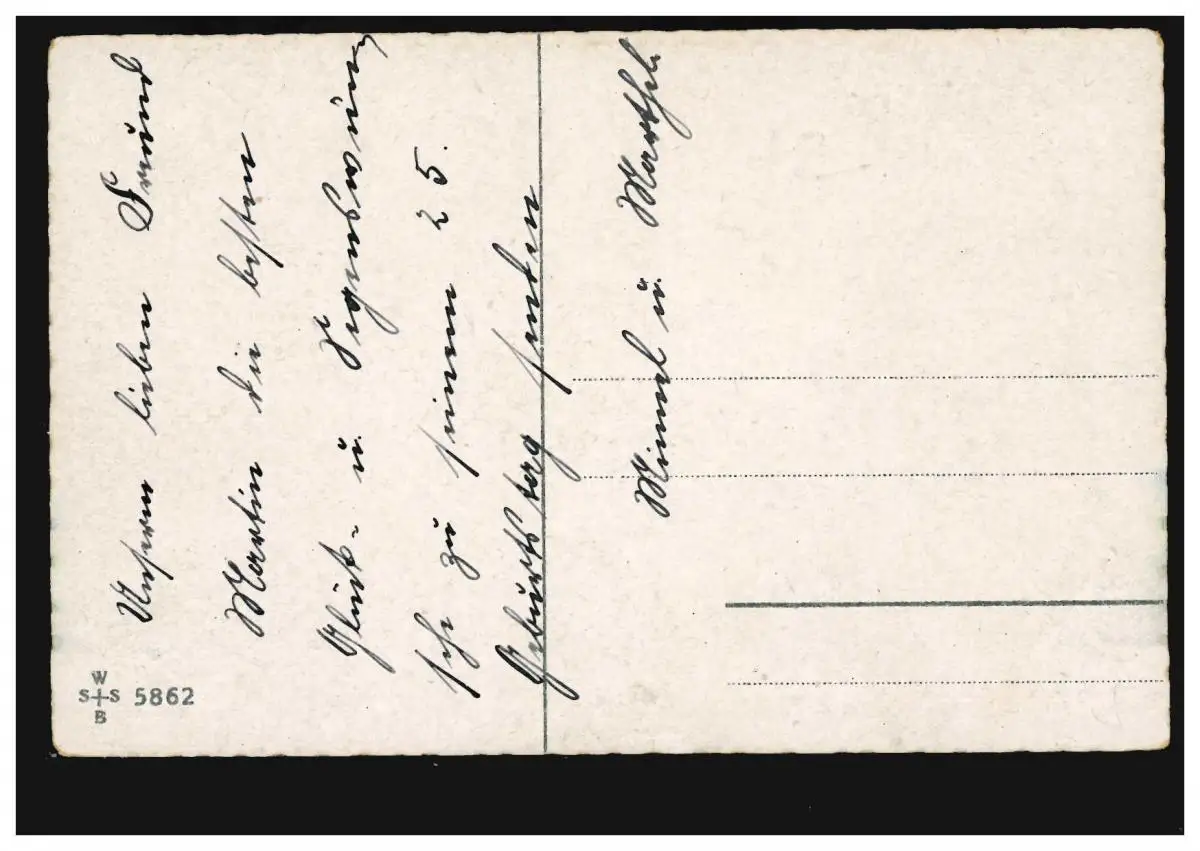 Unserm lieben Freund
Martin die besten
Glück- u. Segenswün-
sche zu seinem 25.
Geburtstag senden
u. Marthel
W
S S 5862
B